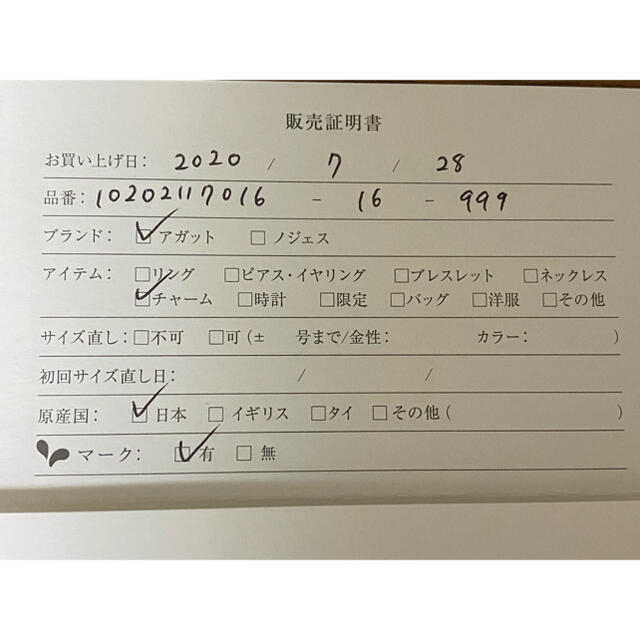 販売証明書
お買い上げ日： 2020 / 7 / 28
品番： 10202117016 - 16 - 999
ブランド： ☑アガット □ノジェス
アイテム： □リング □ピアス・イヤリング □ブレスレット □ネックレス
☑チャーム □時計 □限定 □バッグ □洋服 □その他
サイズ直し：□不可 □可（± 号まで/金性： カラー： ）
初回サイズ直し日： / /
原産国： ☑日本 □イギリス □タイ □その他（ ）
マーク： ☑有 □無